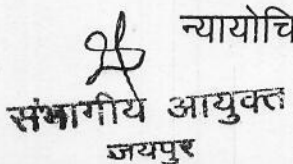 न्यायोचि
संभागीय आयुक्त
जयपुर